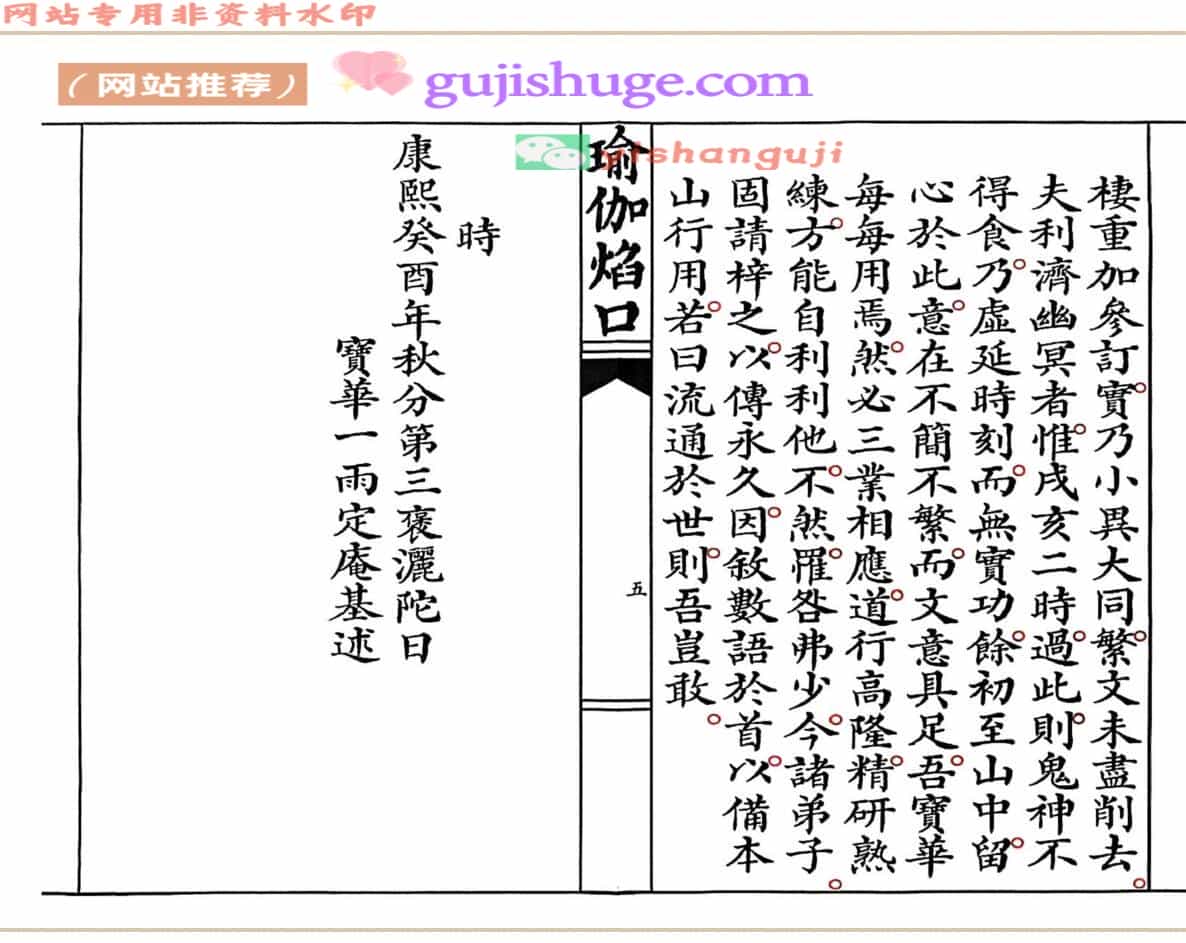 网站专用非资料水印
（网站推荐）
gujishuge.com
yishanguji
棲重加參訂實乃小異大同繁文未盡削去
夫利濟幽冥者惟戌亥二時過此則鬼神不
得食乃虛延時刻而無實功餘初至山中留
心於此意在不簡不繁而文意具足吾寶華
每每用焉然必三業相應道行高隆精研熟
練方能自利利他不然罹咎弗少今諸弟子
固請梓之以傳永久因敘數語於首以備本
山行用若曰流通於世則吾豈敢
瑜伽焰口
五
時
康熙癸酉年秋分第三褒灑陀日
寶華一雨定庵基述